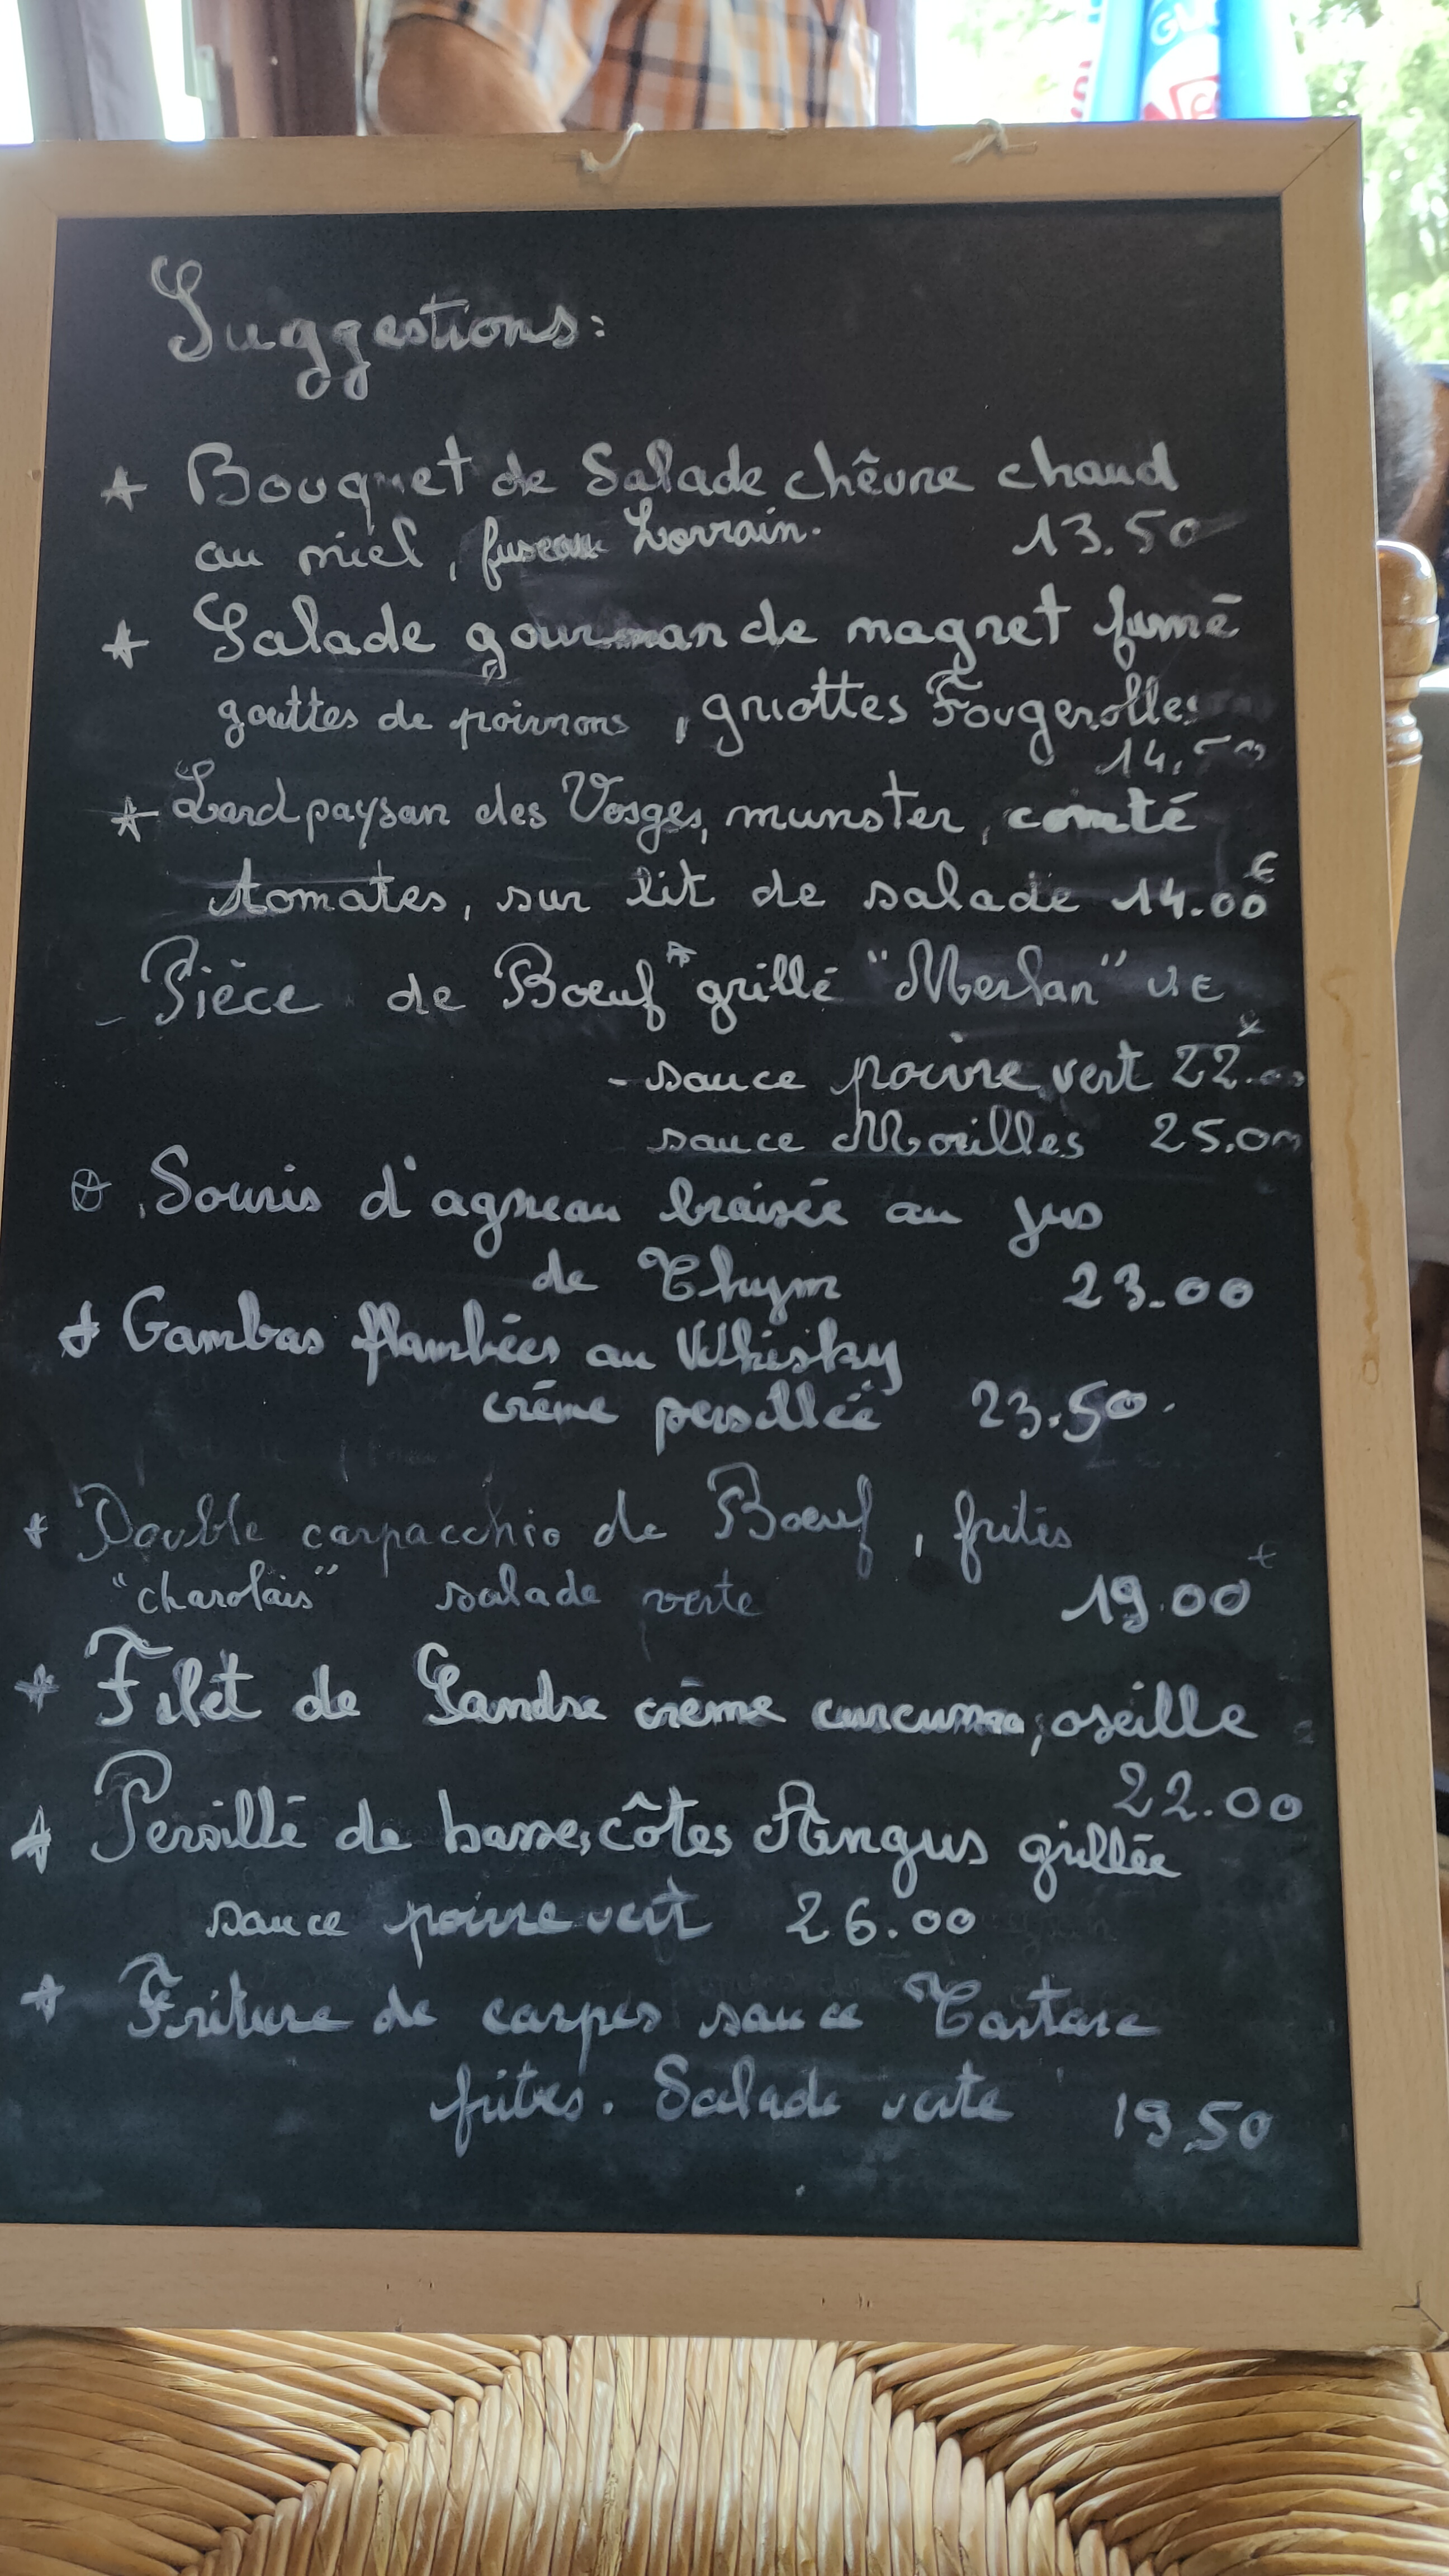 Suggestions:
Bouquet de Salade chêvre chaud
au miel, fuseau Lorrain. 13.50
Salade gourmande magret fumé
gouttes de poivrons, griottes Fougerolles
14.50
Lard paysan des Vosges, munster, comté
tomates, sur lit de salade 14.00€
- Pièce de Boeuf grillé "Merlan" UE
- sauce poivre vert 22.00
sauce Morilles 25.00
Souris d'agneau braisée au jus
de Thym 23.00
Gambas flambées au Whisky
crème persillée 23.50.
Double carpacchio de Boeuf, frites
"charolais" salade verte 19.00
Filet de Sandre crème curcuma, oseille
22.00
Persillé de basses, côtes Angus grillée
sauce poivre vert 26.00
Friture de carpes sauce Tartare
frites. Salade verte 19,50